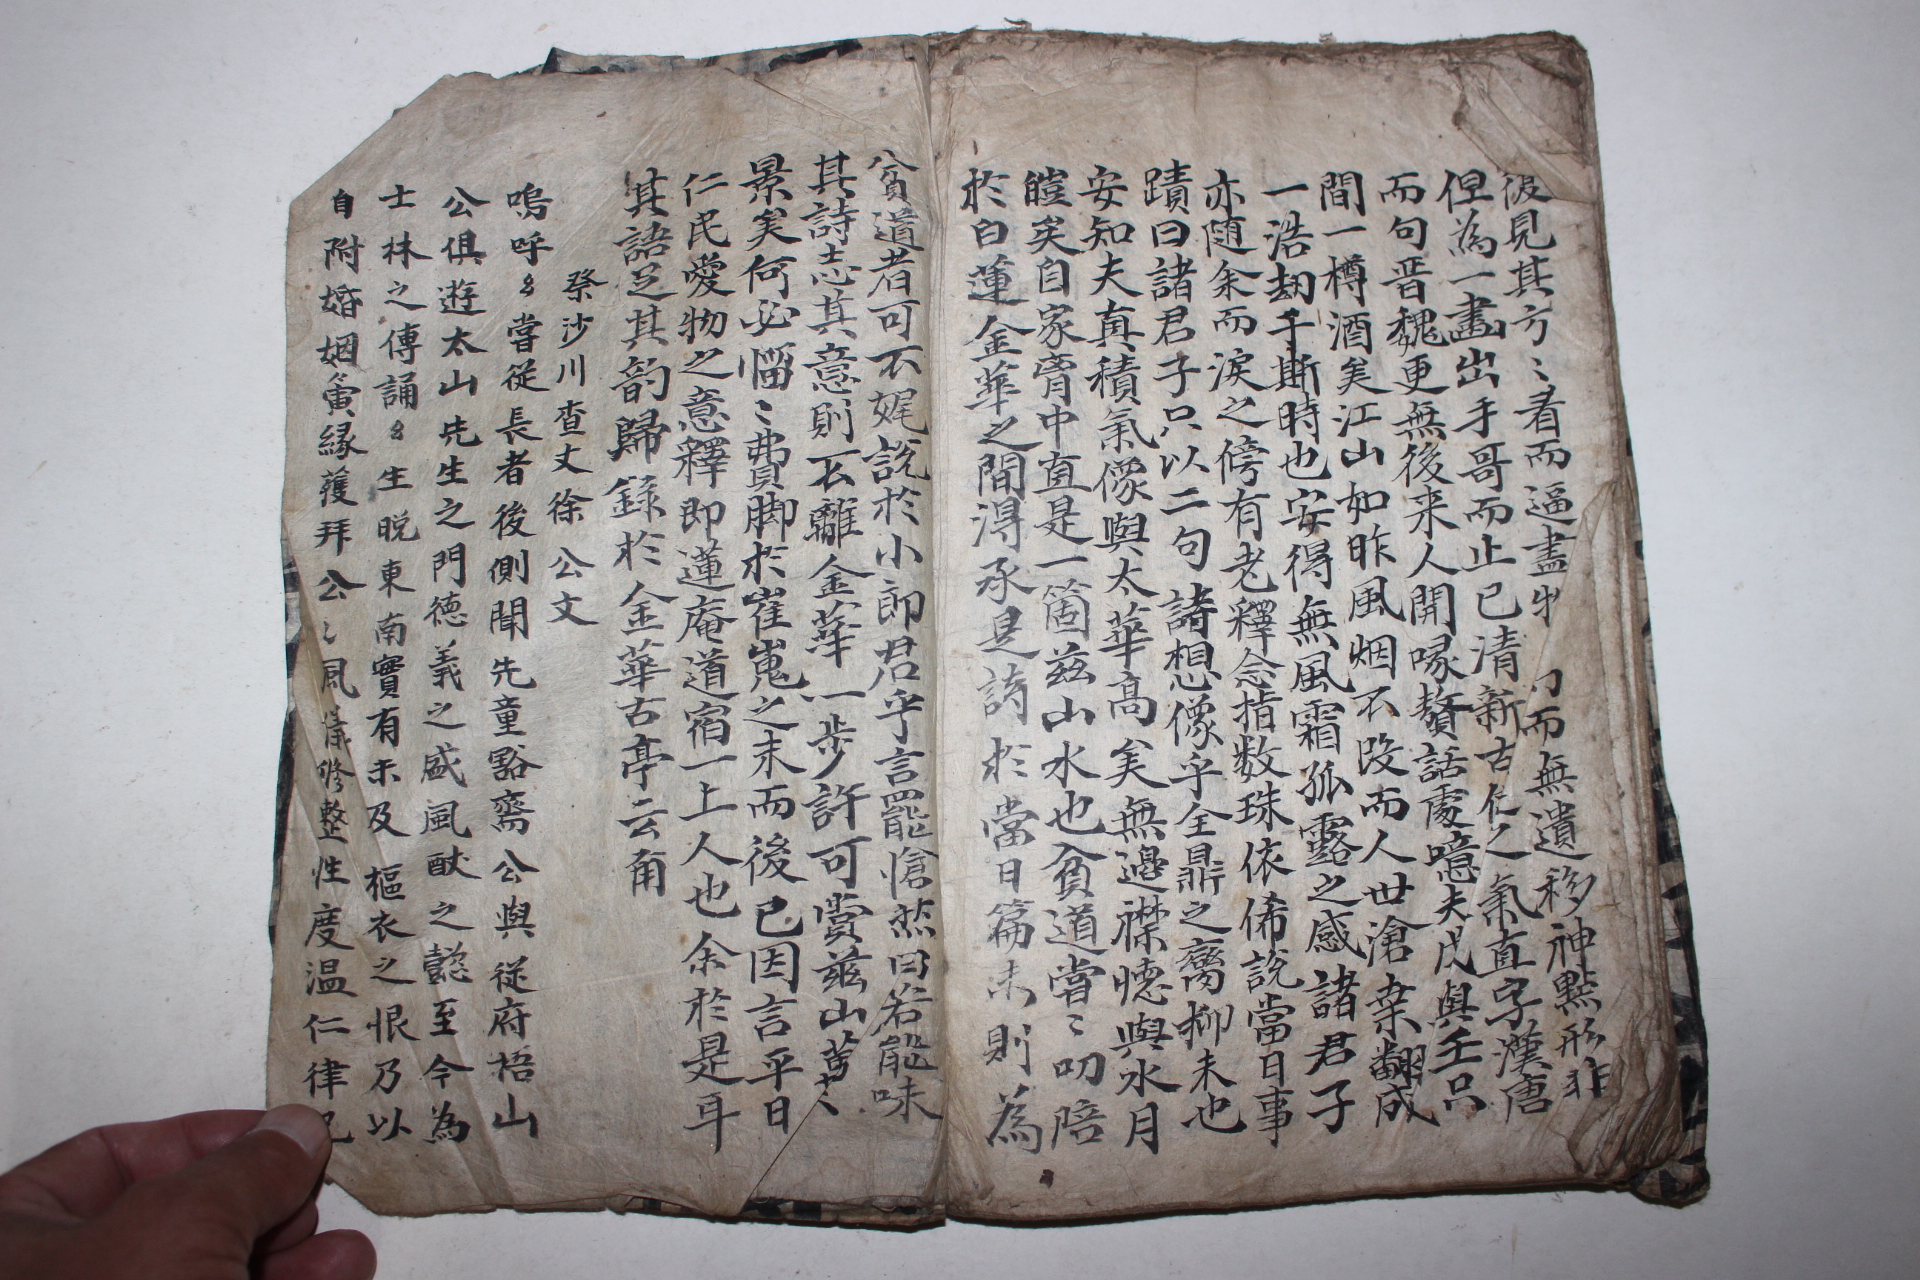 後見其方〻看而逼盡 而無遺移神點形非
但為一畵出手哥而止已清新古 之氣直字漢唐
而句晋魏更無後来人開喙贅話處噫夫戊與壬只
間一樽酒矣江山如昨風烟不改而人世滄桒翻成
一浩劫千斯時也安得無風霜孤露之感諸君子
亦随余而淚之傍有老釋念指数珠依俙說當日事
蹟曰諸君子只以二句詩想像乎全鼎之臠抑未也
安知夫真積氣像與太華髙矣無邉襟懐與水月
皚矣自家胷中直是一箇兹山水也貧道嘗〻叨陪
扵白蓮金華之間淂承是詩扵當日篇未則為
貧道者可不娓說扵小郎君乎言罷愴然曰若能味
其詩志其意則不離金華一步許可賞兹山萬
景矣何必惱〻費脚扵崔嵬之末而後已因言平日
仁民愛物之意釋即蓮庵道宿一上人也余扵是耳
其語足其韵歸錄扵金華古亭云甬
祭沙川查丈徐公文
嗚呼〻嘗從長者後側聞先童豁齋公與從府梧山
公俱遊太山先生之門徳義之盛風猷之懿至今為
士林之傳誦〻生晚東南實有未及樞衣之恨乃以
自附婚姻夤縁獲拜公〻風儀修整性度温仁律己